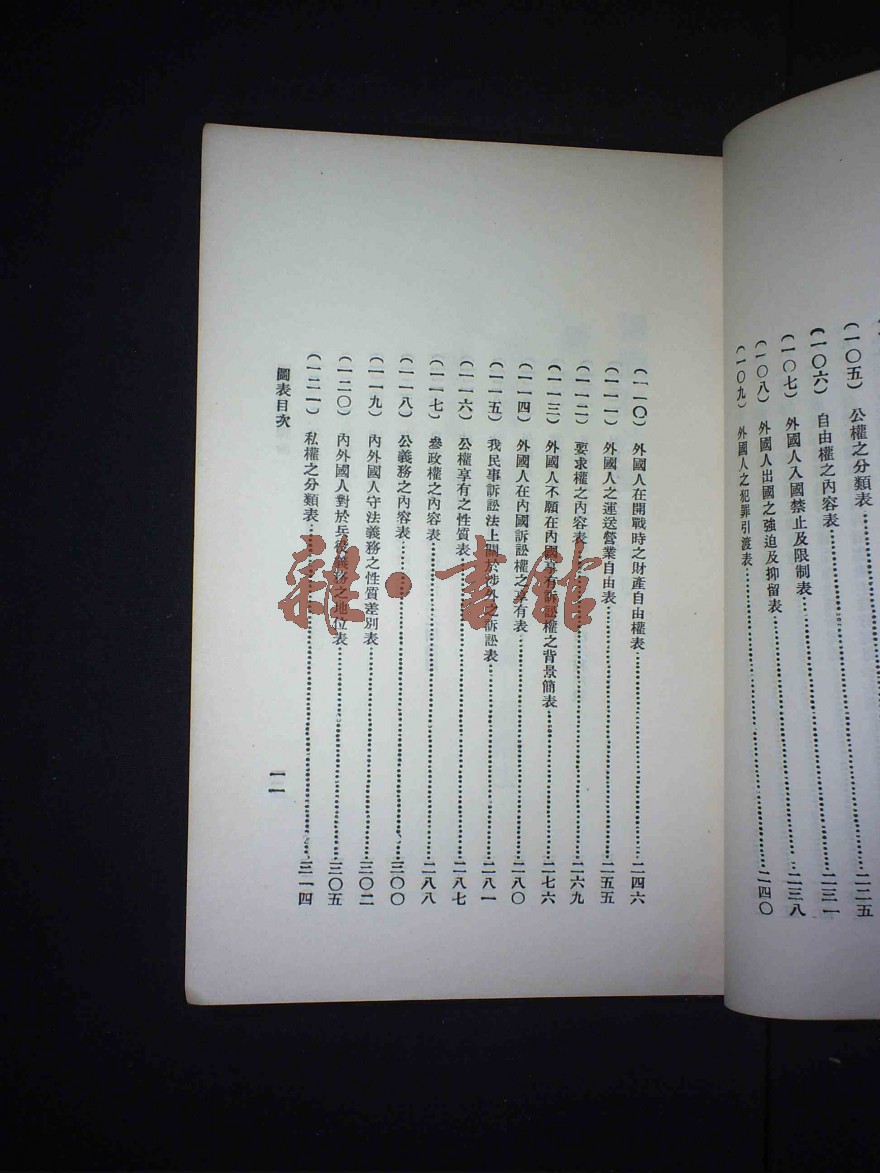 （一〇五） 公權之分類表……二二五
（一〇六） 自由權之內容表……二三一
（一〇七） 外國人入國禁止及限制表……二三八
（一〇八） 外國人出國之強迫及抑留表……二四〇
（一〇九） 外國人之犯罪引渡表……
（一一〇） 外國人在開戰時之財產自由權表……二四六
（一一一） 外國人之運送營業自由表……二五五
（一一二） 要求權之內容表……二六九
（一一三） 外國人不願在內國享有訴訟權之背景簡表……二七六
（一一四） 外國人在內國訴訟權之享有表……二八〇
（一一五） 我民事訴訟法上關於涉外之訴訟表……二八一
（一一六） 公權享有之性質表……二八七
（一一七） 參政權之內容表……二八八
（一一八） 公義務之內容表……三〇〇
（一一九） 內外國人守法義務之性質差別表……三〇二
（一二〇） 內外國人對於兵役義務之地位表……三〇五
（一二一） 私權之分類表……三一四
圖表目次
一一
雜·書館